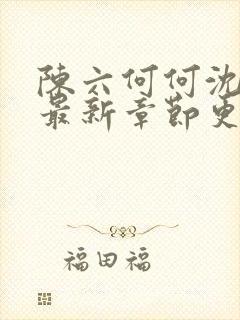 陳六何何沈
最新章節更
福田福